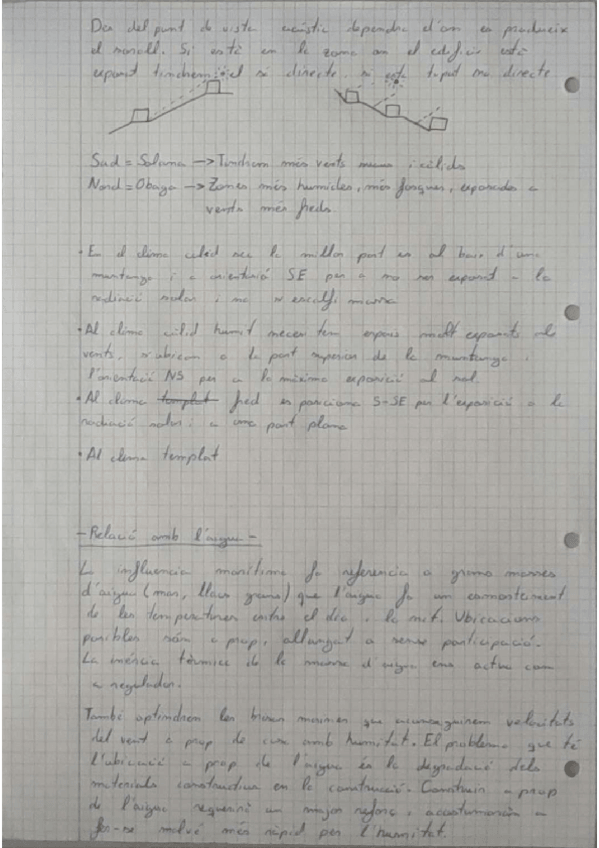 Des del punt de vista acústic dependrà d'on es produeix
el soroll. Si està en la zona on el edifici està
exposat tindrem el só directe, si està tapat no directe
Sud = Solana -> Tindrem més vents i càlids
Nord = Obaga -> Zones més humides, més fosques, exposades a
vents més freds.
· En el clima càlid sec la millor part es al baix d'una
muntanya i a orientació SE per a no ser exposat a la
radiació solar i no s'escalfi massa
· Al clima càlid humit necesitem espais molt exposats als
vents, s'ubican a la part superior de la muntanya i
l'orientació NS per a la màxima exposició al sol.
· Al clima templat fred es posiciona S-SE per l'exposició a la
radiació solar i a una part plana
· Al clima templat
- Relació amb l'aigua -
La influencia marítima fa referencia a grans masses
d'aigua (mar, llacs grans) que l'aigua fa un esmorteiment
de les temperatures entre el dia i la nit. Ubicacions
posibles són a prop, allunyat o sense participació.
La inèrcia tèrmica de la massa d'aigua ens actua com
a regulador.
També obtindrem les brises marines que aconseguirem velocitats
del vent a prop de casa amb humitat. El problema que té
l'ubicació a prop de l'aigua és la degradació dels
materials constructius en la construcció. Construir a prop
de l'aigua requerirà un major reforç, acostumaran a
fer-se malvé més ràpid per l'humitat.